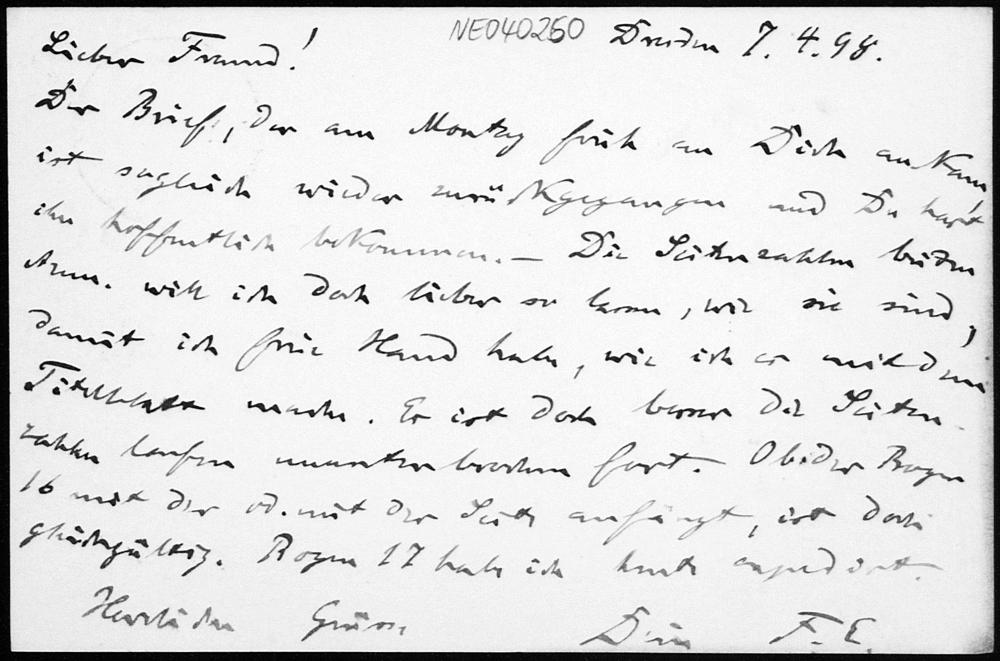 NE040260
Dresden 7.4.98.
Lieber Freund!
Der Brief, der am Montag früh an Dich ankam,
ist sogleich wieder zurückgegangen und Du hast
ihn hoffentlich bekommen. – Die Seitenzahlen beiden
will ich doch lieber so lassen, wie sie sind,
damit ich freie Hand habe, wie ich es mit dem
Titelblatt mache. Es ist doch besser die Seiten-
zahlen laufen ununterbrochen fort. Ob der Bogen
16 mit der od. mit der Seite anfängt, ist doch
gleichgültig. Bogen 17 habe ich heute expediert.
Herzlichen Grüsse
Dein F. E.